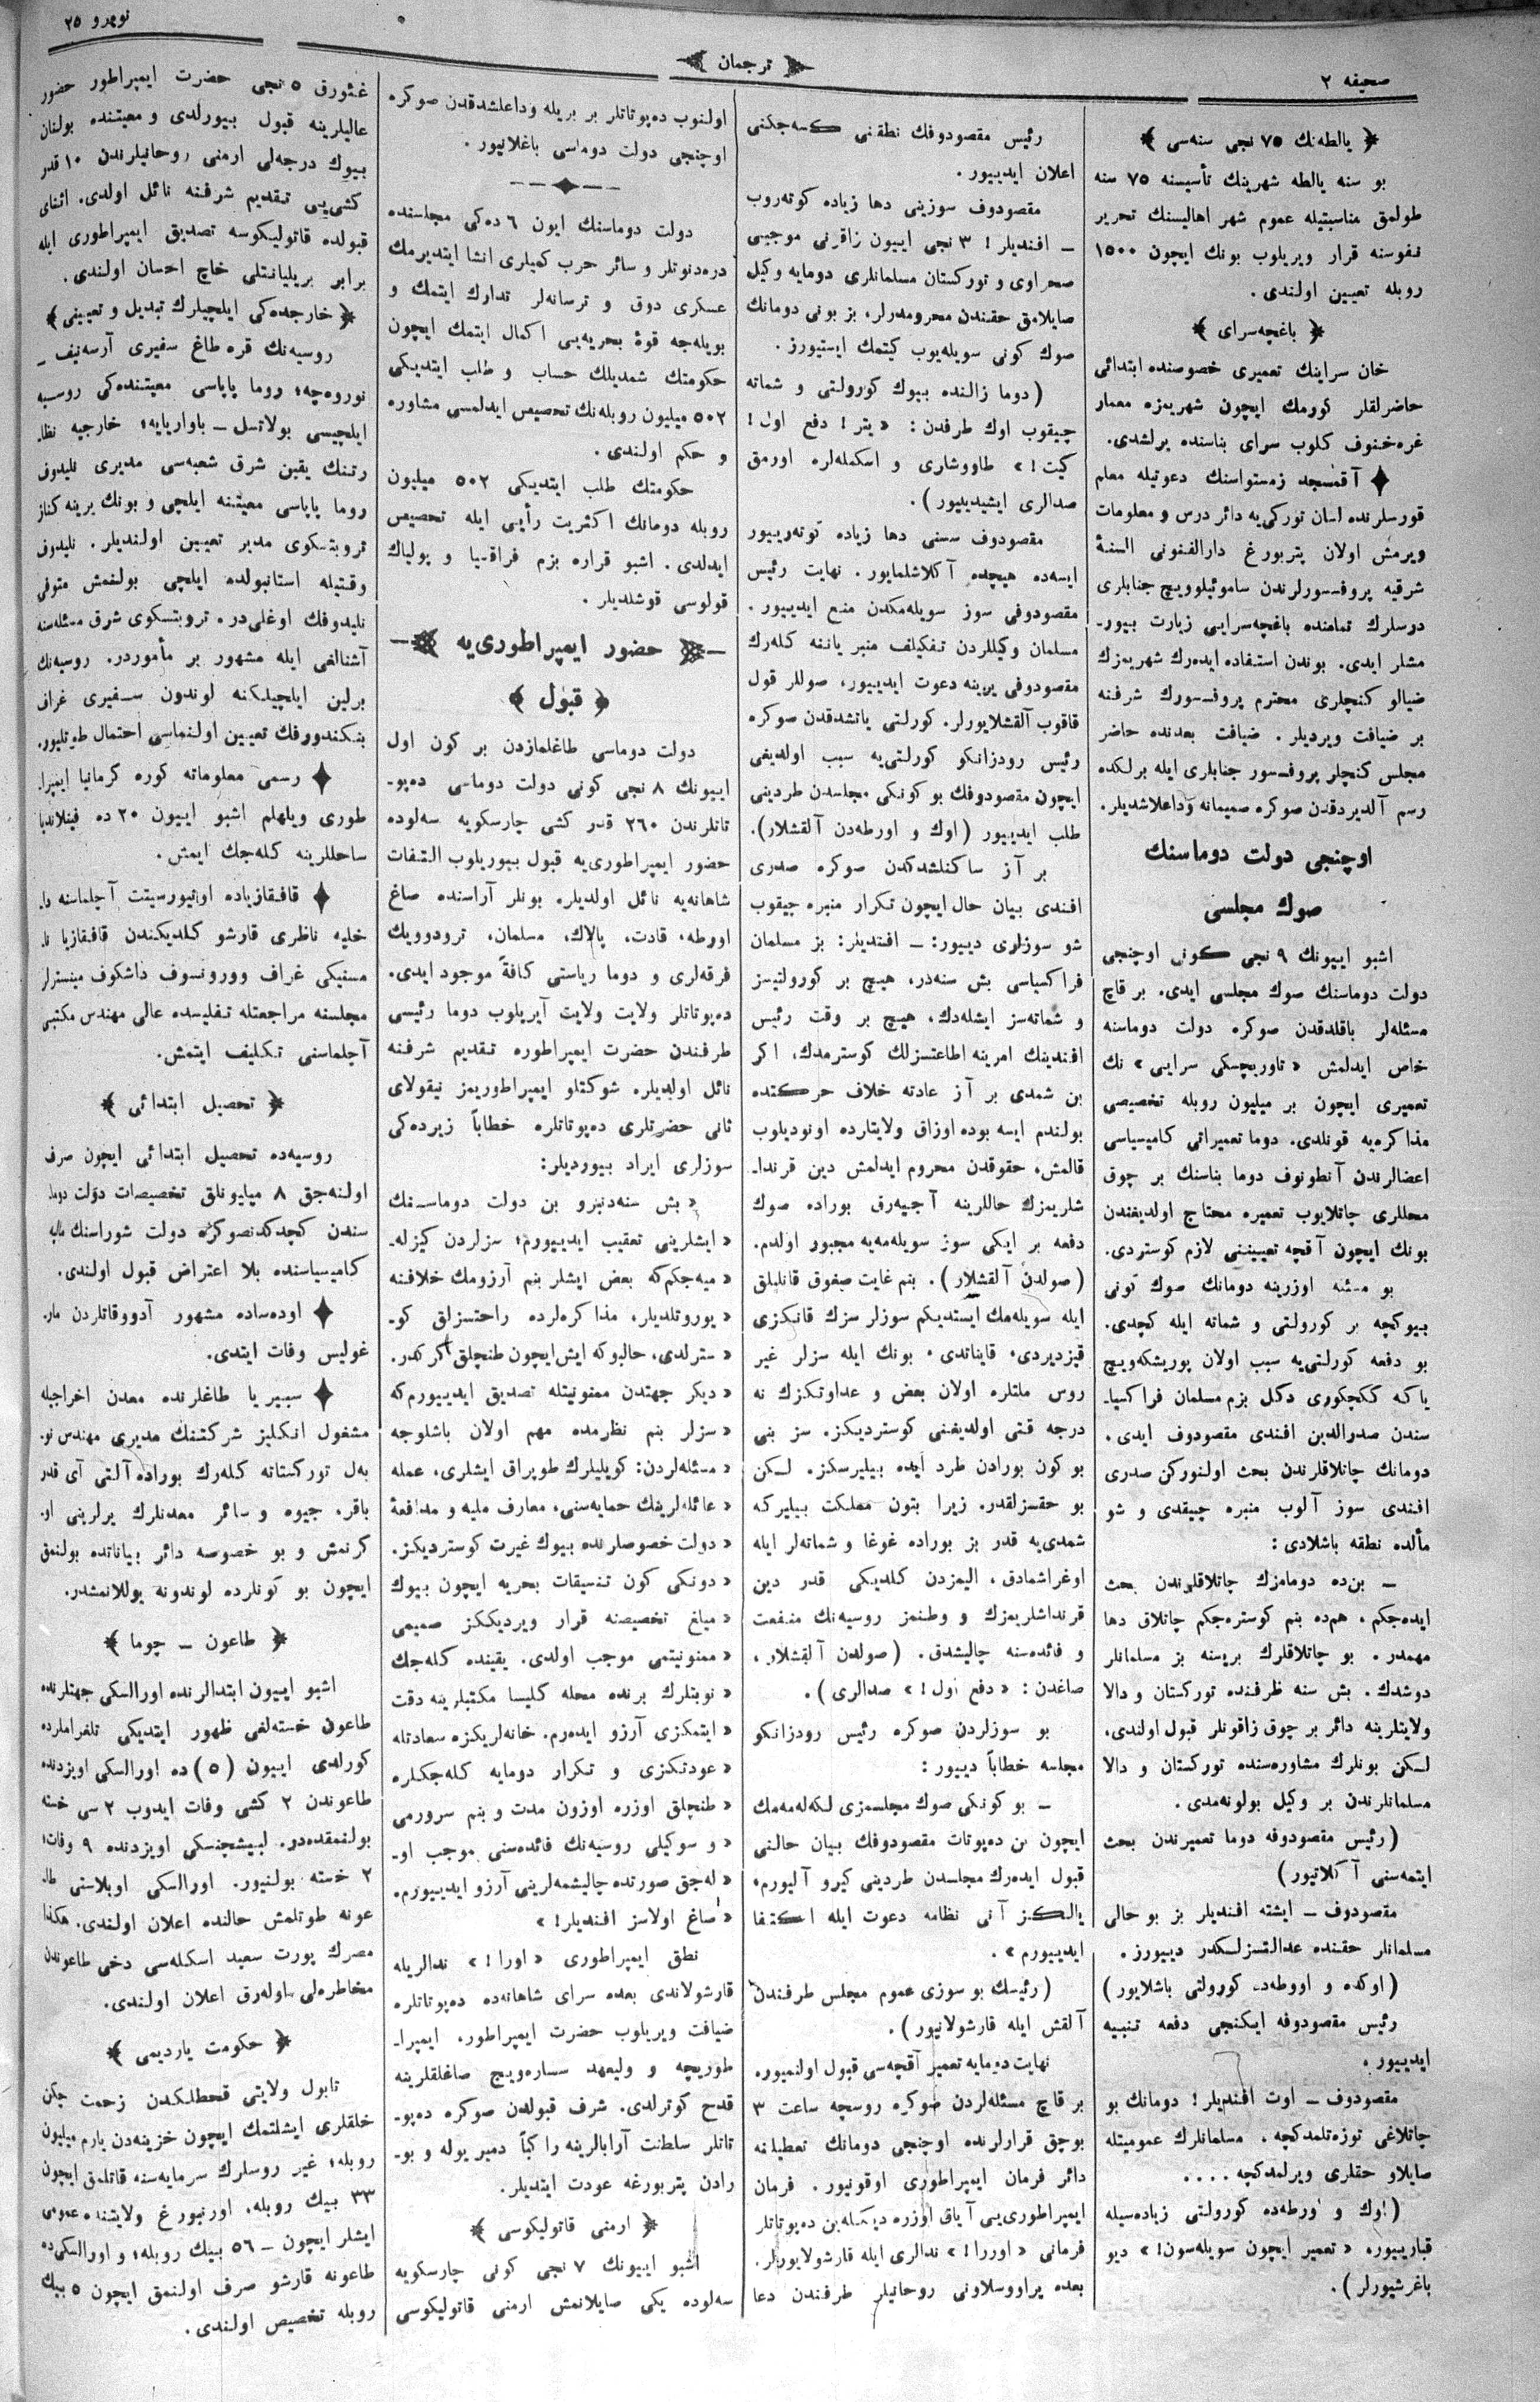 صحیفه ۲
ترجمان
نومرو ۲۵
یالطه‌نك ۷۵ نجی سنه‌سی
بو سنه یالطه شهرینك تأسیسنه ۷۵ سنه
طولمق مناسبتیله عموم شهر اهالیسنك تحریر
نفوسنه قرار ویریلوب بونك ایچون ۱۵۰۰
روبله تعیین اولندی.
باغچه‌سرای
خان سراینك تعمیری خصوصنده ابتدائی
حاضرلقلر كورمك ایچون شهریمزه معمار
غره‌خنوف كلوب سرای بناسنده یرلشدی.
آقمسجد زمستواسنك دعوتیله معلم
قورسلرنده لسان توركی‌یه دائر درس و معلومات
ویرمش اولان پتربورغ دارالفنونی السنۀ
شرقیه پروفسورلرندن ساموئیلوویچ جنابلری
درسلرك تمامنده باغچه‌سرایی زیارت بیور-
مشلر ایدی. بوندن استفاده ایده‌رك شهریمزك
ضیالو كنچلری محترم پروفسورك شرفنه
بر ضیافت ویردیلر. ضیافت بعدنده حاضر
مجلس كنچلر پروفسور جنابلری ایله برلكده
رسم آلدیردقدن صوكره صمیمانه وداعلاشدیلر.
اوچنجی دولت دوماسنك
صوك مجلسی
اشبو اییونك ۹ نجی كونی اوچنجی
دولت دوماسنك صوك مجلسی ایدی. بر قاچ
مسئله‌لر باقلدقدن صوكره دولت دوماسنه
خاص ایدلمش «تاوریچسكی سرایی» نك
تعمیری ایچون بر میلیون روبله تخصیصی
مذاكره‌یه قونلدی. دوما تعمیراتی كامیسیاسی
اعضالرندن آنطونوف دوما بناسنك بر چوق
محللری چاتلایوب تعمیره محتاج اولدیغندن
بونك ایچون آقچه تعییننی لازم كوستردی.
بو مسئله اوزرینه دومانك صوك كونی
بیوكچه بر كورولتی و شماته ایله كچدی.
بو دفعه كورلتی‌یه سبب اولان پوریشكه‌ویچ
یاكه كلچكوری دكل بزم مسلمان فراكسیا-
سندن صدرالدین افندی مقصودوف ایدی.
دومانك چاتلاقلرندن بحث اولنوركن صدری
افندی سوز آلوب منبره چیقدی و شو
مألده نطقه باشلادی:
— بن‌ده دومامزك چاتلاقلرندن بحث
ایده‌جكم. هم‌ده بنم كوستره‌جكم چاتلاق دها
مهمدر. بو چاتلاقلرك بریسنه بز مسلمانلر
دوشدك. بش سنه ظرفنده توركستان و دالا
ولایتلرینه دائر بر چوق زاقونلر قبول اولندی.
لكن بونلرك مشاوره‌سنده توركستان و دالا
مسلمانلرندن بر وكیل بولونه‌مدی.
(رئیس مقصودوفه دوما تعمیرندن بحث
ایتمه‌سنی آكلاتیور)
مقصودوف — ایشته افندیلر بز بو حالی
مسلمانلر حقنده عدالتسزلكدر دییورز.
(اوكده و اورطه‌ده كورولتی باشلایور)
رئیس مقصودوفه ایكنجی دفعه تنبیه
ایدییور.
مقصودوف — اوت افندیلر! دومانك بو
چاتلاغی توزه‌تلمدكچه، مسلمانلرك عمومیتله
صایلاو حقلری ویرلمدكچه ....
(اوك و اورطه‌ده كورولتی زیاده‌سیله
قباریییور. «تعمیر ایچون سویله‌سون!» دیو
باغرشیورلر).
رئیس مقصودوفك نطقنی كسه‌جكنی
اعلان ایدییور.
مقصودوف سوزینی دها زیاده كوته‌روب
— افندیلر! ۳ نجی اییون زاقونی موجبی
صحراوی و توركستان مسلمانلری دومایه وكیل
صایلامق حقندن محرومدرلر، بز بونی دومانك
صوك كونی سویله‌یوب كیتمك ایستیورز.
(دوما زالنده بیوك كورولتی و شماته
چیقوب اوك طرفدن: «یتر! دفع اول!
كیت!» طاووشلری و اسكمله‌لره اورمق
صدالری ایشیدیییور).
مقصودوف سسنی دها زیاده كوته‌رییور
ایسه‌ده هیچده آكلاشلمایور. نهایت رئیس
مقصودوفی سوز سویله‌مكدن منع ایدییور.
مسلمان وكیللردن تفكیلف منبر یاننه كله‌رك
مقصودوفی یرینه دعوت ایدییور، صوللر قول
قاقوب آلقشلایورلر. كورلتی یاتشدقدن صوكره
رئیس رودزانكو كورلتی‌یه سبب اولدیغی
ایچون مقصودوفك بو كونكی مجلسدن طردینی
طلب ایدییور (اوك و اورطه‌دن آلقشلار).
بر آز ساكنلشدكدن صوكره صدری
افندی بیان حال ایچون تكرار منبره چیقوب
شو سوزلری دییور: — افندیلر: بز مسلمان
فراكسیاسی بش سنه‌در، هیچ بر كورولتیسز
و شماته‌سز ایشله‌دك، هیچ بر وقت رئیس
افندینك امرینه اطاعتسزلك كوسترمدك، اكر
بن شمدی بر آز عادته خلاف حركتده
بولندم ایسه بوده اوزاق ولایتلرده اونودیلوب
قالمش، حقوقدن محروم ایدلمش دین قرندا-
شلریمزك حاللرینه آجیه‌رق بوراده صوك
دفعه بر ایكی سوز سویله‌مه‌یه مجبور اولدم.
(صولدن آلقشلار). بنم غایت صغوق قانلیلق
ایله سویله‌مك ایستدیكم سوزلر سزك قانكزی
قیزدیردی، قایناتدی. بونك ایله سزلر غیر
روس ملتلره اولان بعض و عداوتكزك نه
درجه قتی اولدیغنی كوستردیكز. سز بنی
بو كون بورادن طرد ایده بیلیرسكز. لكن
بو حقسزلقدر. زیرا بتون مملكت بیلیركه
شمدی‌یه قدر بز بوراده غوغا و شماته‌لر ایله
اوغراشمادق، الیمزدن كلدیكی قدر دین
قرنداشلریمزك و وطنمز روسیه‌نك منفعت
و فائده‌سنه چالیشدق. (صولدن آلقشلار،
صاغدن: «دفع اول!» صدالری).
بو سوزلردن صوكره رئیس رودزانكو
مجلسه خطاباً دییور:
— بو كونكی صوك مجلسمزی لكه‌له‌مه‌مك
ایچون بن ده‌پوتات مقصودوفك بیان حالنی
قبول ایده‌رك مجلسدن طردینی كیرو آلیورم.
یالكز آنی نظامه دعوت ایله اكتفا
ایدییورم».
(رئیسك بو سوزی عموم مجلس طرفندن
آلقش ایله قارشولانیور).
نهایت دومایه تعمیر آقچه‌سی قبول اولنمیور.
بر قاچ مسئله‌لردن صوكره روسچه ساعت ۳
بوچق قرارلرنده اوچنجی دومانك تعطیلنه
دائر فرمان ایمپراطوری اوقونیور. فرمان
ایمپراطوری‌یی آیاق اوزره دیكله‌ین ده‌پوتاتلر
فرمانی «اوررا!» ندالری ایله قارشولایورلر.
بعده پراووسلاونی روحانیلر طرفندن دعا
اولنوب ده‌پوتاتلر بر بریله وداعلشدقدن صوكره
اوچنجی دولت دوماسی باغلانیور.
دولت دوماسنك ایون ۶ ده‌كی مجلسنده
دره‌دنوتلر و سائر حرب كمیلری انشا ایتدیرمك
عسكری دوق و ترسانه‌لر تدارك ایتمك و
بویله‌جه قوۀ بحریه‌یی اكمال ایتمك ایچون
حكومتك شمدیلك حساب و طلب ایتدیكی
۵۰۲ میلیون روبله‌نك تخصیص ایدلمسی مشاوره
و حكم اولندی.
حكومتك طلب ایتدیكی ۵۰۲ میلیون
روبله دومانك اكثریت رأیی ایله تخصیص
ایدلدی. اشبو قراره بزم فراقسیا و پولیاك
قولوسی قوشلدیلر.
حضور ایمپراطوری‌یه
قبول
دولت دوماسی طاغلمازدن بر كون اول
اییونك ۸ نجی كونی دولت دوماسی ده‌پو-
تاتلرندن ۲۶۰ قدر كشی چارسكویه سه‌لوده
حضور ایمپراطوری‌یه قبول بیوریلوب التفات
شاهانه‌یه نائل اولدیلر. بونلر آراسنده صاغ
اورطه، قادت، پالاك، مسلمان، ترودوویك
فرقه‌لری و دوما ریاستی كافةً موجود ایدی.
ده‌پوتاتلر ولایت ولایت آیریلوب دوما رئیسی
طرفندن حضرت ایمپراطوره تقدیم شرفنه
نائل اولدیلر. شوكتلو ایمپراطوریمز نیقولای
ثانی حضرتلری ده‌پوتاتلره خطاباً زیرده‌كی
سوزلری ایراد بیوردیلر:
« بش سنه‌دنبرو بن دولت دوماسنك
« ایشلرینی تعقیب ایدییورم؛ سزلردن كیزله-
« میه‌جكم‌كه بعض ایشلر بنم آرزومك خلافنه
« یوروتلدیلر، مذاكره‌لرده راحتسزلق كو-
« سترلدی، حالبوكه ایش ایچون طنچلق كركدر.
« دیكر جهتدن ممنونیتله تصدیق ایدییورم‌كه
« سزلر بنم نظرمده مهم اولان باشلوجه
« مسئله‌لردن: كویلیلرك طوپراق ایشلری، عمله
« عائله‌لرینك حمایه‌سنی، معارف ملیه و مدافعۀ
« دولت خصوصلرنده بیوك غیرت كوستردیكز.
« دونكی كون تنسیقات بحریه ایچون بیوك
« مبلغ تخصیصنه قرار ویردیككز صمیمی
« ممنونیتمی موجب اولدی. یقینده كله‌جك
« نوبتلرك برنده محله كلیسا مكتبلرینه دقت
« ایتمكزی آرزو ایده‌رم. خانه‌لریكزه سعادتله
« عودتكزی و تكرار دومایه كله‌جكلره
« طنچلق اوزره اوزون مدت و بنم سرورمی
« و سوكیلی روسیه‌نك فائده‌سنی موجب او-
« له‌جق صورتده چالیشمه‌لرینی آرزو ایدییورم.
« صاغ اولاسز افندیلر! »
نطق ایمپراطوری «اورا!» ندالریله
قارشولاندی بعده سرای شاهانه‌ده ده‌پوتاتلره
ضیافت ویریلوب حضرت ایمپراطور، ایمپرا-
طوریچه و ولیعهد سساره‌ویچ صاغلقلرینه
قدح كوترلدی. شرف قبولدن صوكره ده‌پو-
تاتلر سلطنت آرابالرینه راكباً دمیر یوله و بو-
رادن پتربورغه عودت ایتدیلر.
ارمنی قاتولیكوسی
اشبو اییونك ۷ نجی كونی چارسكویه
سه‌لوده یكی صایلانمش ارمنی قاتولیكوسی
غئورق ۵ نجی حضرت ایمپراطور حضور
عالیلرینه قبول بیورلدی و معیتنده بولنان
بیوك درجه‌لی ارمنی روحانیلرندن ۱۰ قدر
كشی‌یی تقدیم شرفنه نائل اولدی. اثنای
قبولده قاتولیكوسه تصدیق ایمپراطوری ایله
برابر بریلیانتلی خاچ احسان اولندی.
خارجده‌كی ایلچیلرك تبدیل و تعیینی
روسیه‌نك قره طاغ سفیری آرسه‌نیف —
نوروه‌چه؛ روما پاپاسی معیتنده‌كی روسیه
ایلچیسی بولاتسل — باواریایه؛ خارجیه نظا-
رتنك یقین شرق شعبه‌سی مدیری نلیدوف
روما پاپاسی معیتنه ایلچی و بونك یرینه كناز
تروبتسكوی مدیر تعیین اولندیلر. نلیدوف
وقتیله استانبولده ایلچی بولنمش متوفی
نلیدوفك اوغلی‌در. تروبتسكوی شرق مسئله‌سنه
آشنالغی ایله مشهور بر مأموردر. روسیه‌نك
برلین ایلچیلكنه لوندون سفیری غراف
بنكندورفك تعیین اولنماسی احتمال طوتلیور.
رسمی معلوماته كوره كرمانیا ایمپرا-
طوری ویلهلم اشبو اییون ۲۰ ده فینلاندیا
ساحللرینه كله‌جك ایمش.
قافقازیاده اونیورسیتت آچلماسنه دا-
خلیه ناظری قارشو كلدیكندن قافقازیا نا-
مسنیكی غراف وورونسوف داشكوف مینسترلر
مجلسنه مراجعتله تفلیسده عالی مهندس مكتبی
آچلماسنی تكلیف ایتمش.
تحصیل ابتدائی
روسیه‌ده تحصیل ابتدائی ایچون صرف
اولنه‌جق ۸ میلیونلق تخصیصات دولت دوما-
سندن كچدكدنصوكره دولت شوراسنك مالیه
كامیسیاسنده بلا اعتراض قبول اولندی.
اوده‌ساده مشهور آدووقاتلردن مار-
غولیس وفات ایتدی.
سیبریا طاغلرنده معدن اخراجیله
مشغول انكلیز شركتنك مدیری مهندس نو-
به‌ل توركستانه كله‌رك بوراده آلتی آی قدر
باقر، جیوه و سائر معدنلرك یرلرینی او-
كرنمش و بو خصوصه دائر بیاناتده بولنمق
ایچون بو كونلرده لوندونه یوللانمشدر.
طاعون — چوما
اشبو اییون ابتدالرنده اورالسكی جهتلرنده
طاعون خسته‌لغی ظهور ایتدیكی تلغرافلرده
كورلدی اییون (۵) ده اورالسكی اویزدنده
طاعوندن ۲ كشی وفات ایدوب ۲ سی خسته
بولنمقده‌در. لبیشچنسكی اویزدنده ۹ وفات؛
۲ خسته بولنیور. اورالسكی اوبلاستی طا-
عونه طوتلمش حالنده اعلان اولندی. هكذا
مصرك پورت سعید اسكله‌سی دخی طاعوندن
مخاطره‌لی اوله‌رق اعلان اولندی.
حكومت یاردیمی
تابول ولایتی قحطلكدن زحمت چكن
خلقلری ایشلتمك ایچون خزینه‌دن یارم میلیون
روبله؛ غیر روسلرك سرمایه‌سنه قاتلمق ایچون
۳۳ بیك روبله. اورنبورغ ولایتنده عمومی
ایشلر ایچون — ۵۶ بیك روبله؛ و اورالسكی‌ده
طاعونه قارشو صرف اولنمق ایچون ۵ بیك
روبله تخصیص اولندی.